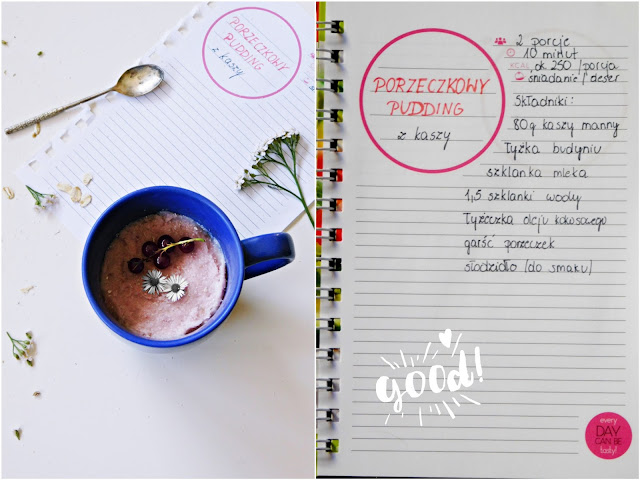 PORZECZKOWY
PUDDING
z kaszy
PORZECZKOWY
PUDDING
z kaszy
2 porcje
10 minut
KCAL ok 250 /porcja
śniadanie/deser
Składniki:
80g kaszy manny
łyżka budyniu
szklanka mleka
1,5 szklanki wody
łyżeczka oleju kokosowego
garść porzeczek
słodzidło /do smaku/
good!
every
DAY
CAN BE
tasty!